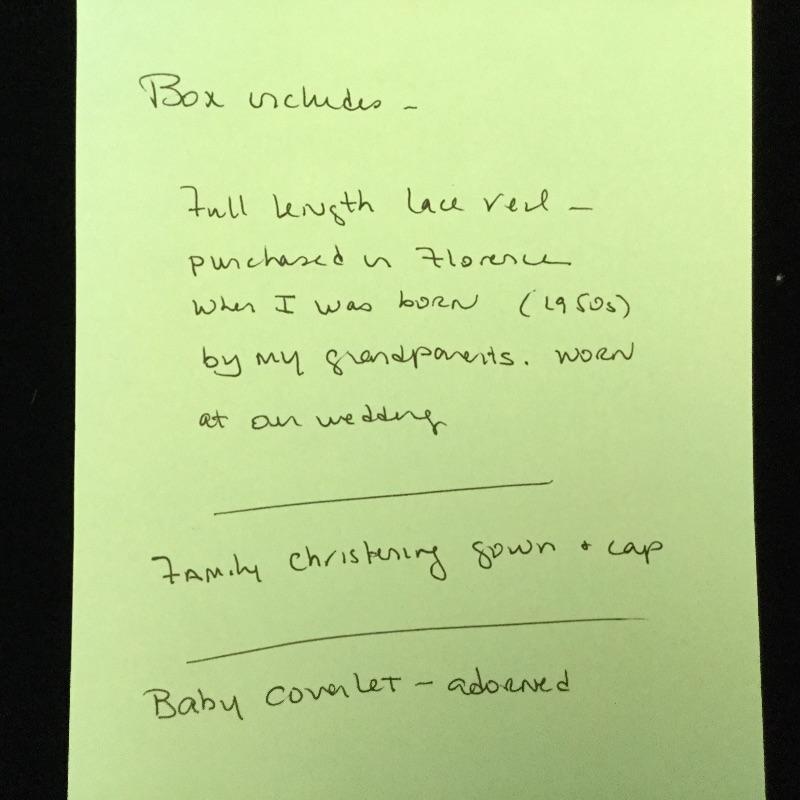 Box includes -
Full length lace veil -
purchased in Florence
when I was born (1950s)
by my grandparents. worn
at our wedding
Family christening gown + cap
Baby coverlet - adorned